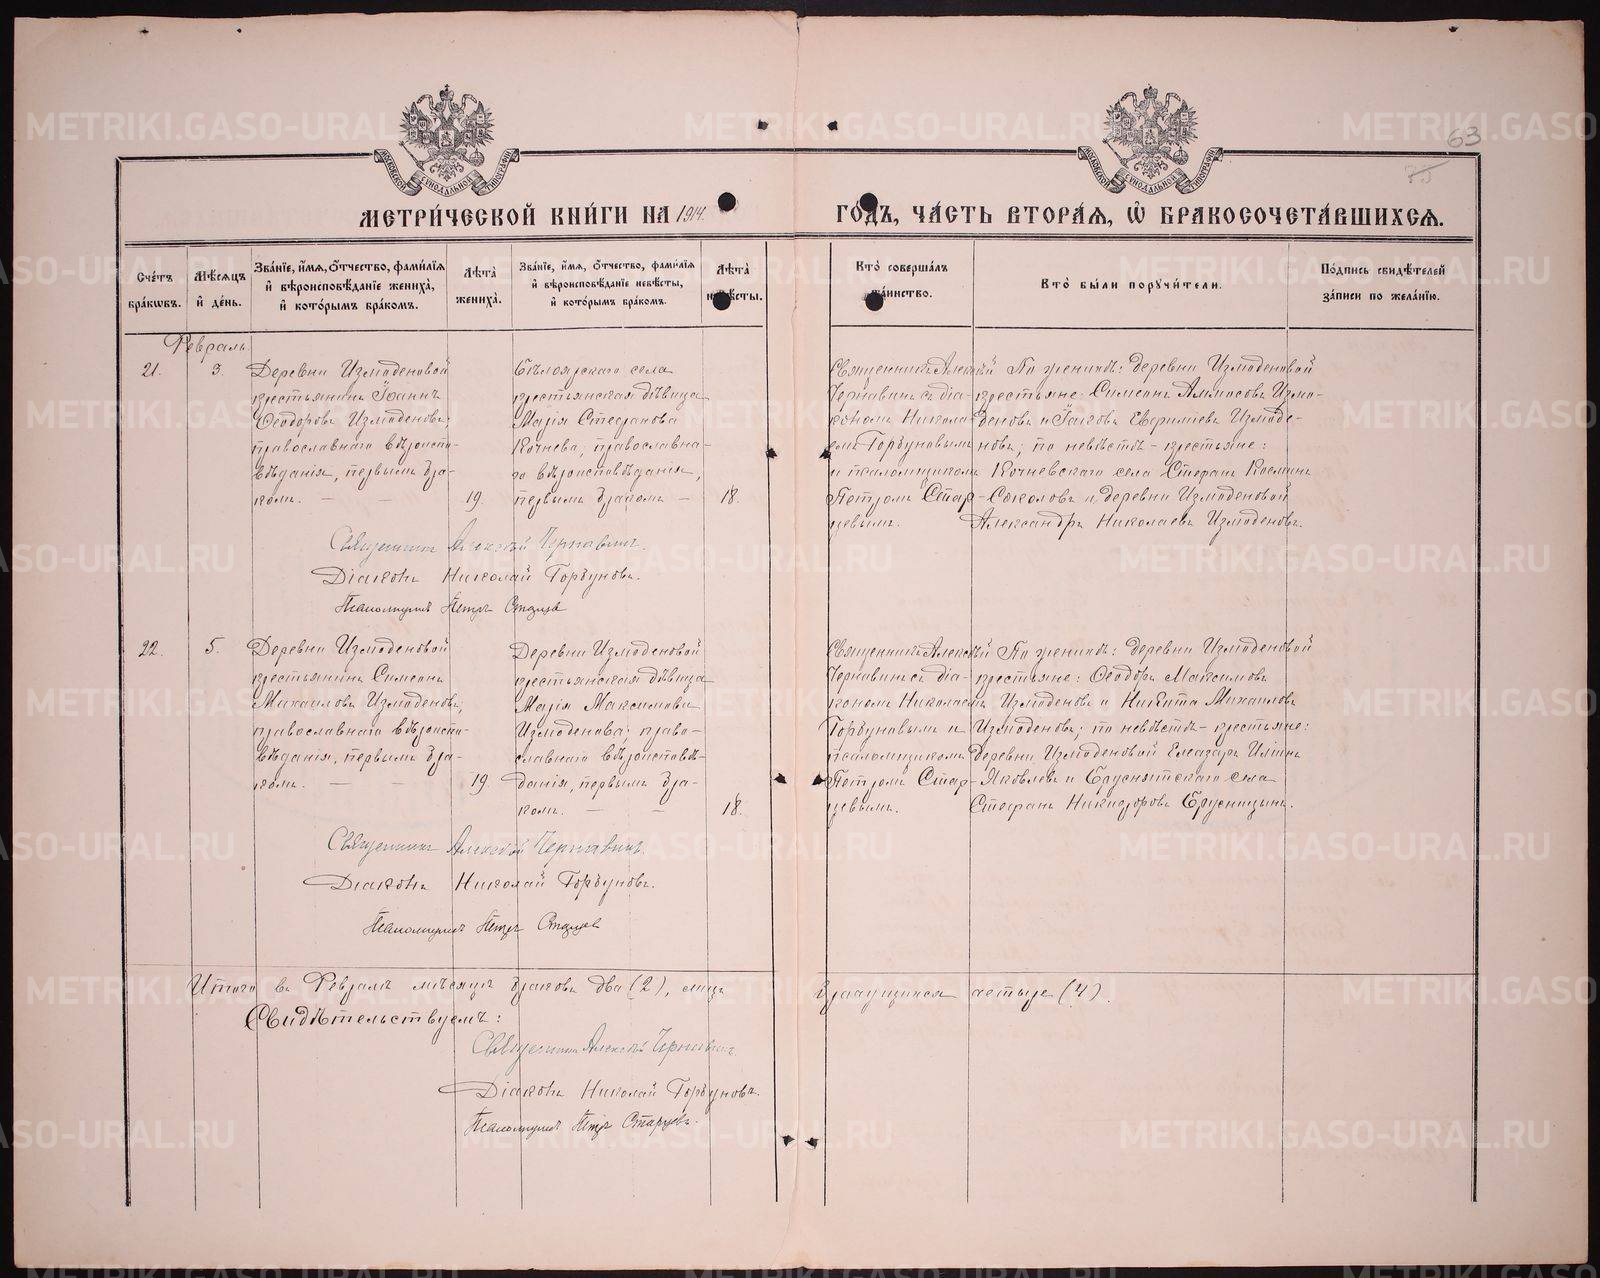 63
75
МОСКОВСКОЙ СѴНОДАЛЬНОЙ ТИПОГРАФІИ
МОСКОВСКОЙ СѴНОДАЛЬНОЙ ТИПОГРАФІИ
МЕТРИ́ЧЕСКОЙ КНИ́ГИ НА 1914.
ГО́ДЪ, ЧА́СТЬ ВТОРА́Ѧ, Ѽ БРАКОСОЧЕТА́ВШИХСѦ.
Сче́тъ бра́кѡвъ.
Мѣ́сѧцъ и҆ де́нь.
Зва́нїе, и҆́мѧ, ѻ҆́тчество, фами́лїѧ и҆ вѣроисповѣ́данїе жениха̀, и҆ кото́рымъ бра́комъ.
Лѣ́та жениха̀.
Зва́нїе, и҆́мѧ, ѻ҆́тчество, фами́лїѧ и҆ вѣроисповѣ́данїе невѣ́сты, и҆ кото́рымъ бра́комъ.
Лѣ́та невѣ́сты.
Кто̀ соверша́лъ та́инство.
Кто̀ бы́ли порꙋчи́тели.
По́дпись свидѣ́телей за́писи по жела́нїю.
Февраль
21.
3.
Деревни Измоденовой
крестьянинъ Іоаннъ
Ѳеодоровъ Измоденовъ,
православнаго вѣроиспо-
вѣданія, первымъ бра-
комъ. — —
19.
Бѣлоярскаго села
крестьянская дѣвица
Марія Стефанова
Кочнева, православна-
го вѣроисповѣданія,
первымъ бракомъ —
18.
Священникъ Алексѣй
Чернавинъ съ діа-
кономъ Никола-
емъ Горбуновымъ
и псаломщикомъ
Петромъ Стар-
цевымъ.
По женихѣ: деревни Измоденовой
крестьяне: Симеонъ Алмасовъ Измо-
деновъ и Іаковъ Евфиміевъ Измоде-
новъ; по невѣстѣ – крестьяне:
Кочневскаго села Стефанъ Косминъ
Соколовъ и деревни Измоденовой
Александръ Николаевъ Измоденовъ.
Священникъ Алексѣй Чернавинъ.
Діаконъ Николай Горбуновъ.
Псаломщикъ Петръ Старцевъ
22.
5.
Деревни Измоденовой
крестьянинъ Симеонъ
Михаиловъ Измоденовъ,
православнаго вѣроиспо-
вѣданія, первымъ бра-
комъ. — —
19.
Деревни Измоденовой
крестьянская дѣвица
Марія Максимова
Измоденова, право-
славнаго вѣроисповѣ-
данія, первымъ бра-
комъ. — —
18.
Священникъ Алексѣй
Чернавинъ съ діа-
кономъ Николаемъ
Горбуновымъ и
псаломщикомъ
Петромъ Стар-
цевымъ.
По женихѣ: деревни Измоденовой
крестьяне: Ѳеодоръ Максимовъ
Измоденовъ и Никита Михаиловъ
Измоденовъ; по невѣстѣ – крестьяне:
деревни Измоденовой Елеазаръ Илiинъ
Яковлевъ и Бруснятскаго села
Стефанъ Никифоровъ Брусницынъ.
Священникъ Алексѣй Чернавинъ
Діаконъ Николай Горбуновъ.
Псаломщикъ Петръ Старцевъ
Итого въ Февралѣ мѣсяцѣ браковъ два (2), лицъ
брачущихся четыре (4).
Свидѣтельствуемъ:
Священникъ Алексѣй Чернавинъ.
Діаконъ Николай Горбуновъ.
Псаломщикъ Петръ Старцевъ.
METRIKI.GASO-URAL.RU